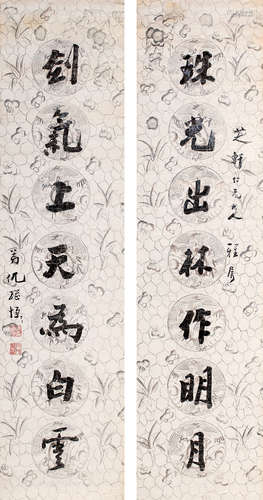 芝軒仁兄大人
雅屬
珠光出林作明月
劍氣上天為白雲